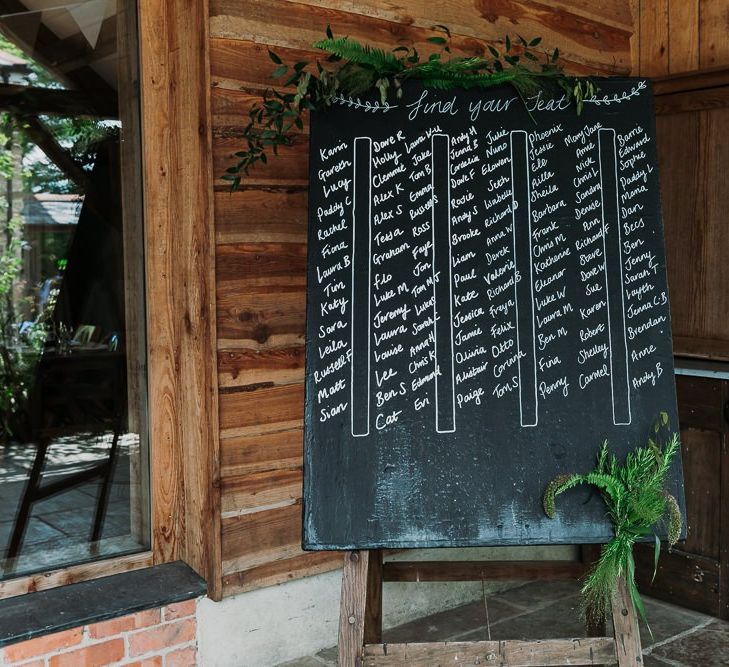 find your Seat
Karin
Gareth
Lucy
Paddy C
Rachel
Fiona
Laura B
Tim
Katy
Sara
Leila
Russell F
Matt
Sian
Dave R
Holly
Clemmie
Alex K
Alex S
Tessa
Graham
Flo
Luke M
Jeremy
Laura
Louise
Lee
Ben S
Cat
Laura
Jake
Tom B
Emma
Russell S
Ross
Faye
Jon
Tom M J
Lukas
Sarah C
Anna H
Chris K
Edmond
Evi
Andy H
Jenna B
Cordelia
Dave F
Rosie
Andy S
Brooke
Liam
Paul
Kate
Jessica
Jamie
Olivia
Alistair
Paige
Julie
Nuno
Elowen
Seth
Isabelle
Richard
Anna W
Derek
Valerie
Richard B
Freya
Felix
Otto
Corinna
Tom S
Phoenix
Jessie
Elo
Rilla
Sheila
Barbara
Frank
Chris M
Katherine
Eleanor
Luke W
Laura M
Ben M
Fina
Penny
Mary Jane
Amie
Nick
Chris L
Sandra
Denise
Ann
Richard F
Steve
Dave W
Sue
Karen
Robert
Shelley
Carmel
Barrie
Edward
Sophie
Paddy L
Maria
Dan
Becs
Ben
Jenny
Sarah T
Layth
Jenna C-B
Brendan
Anne
Andy B